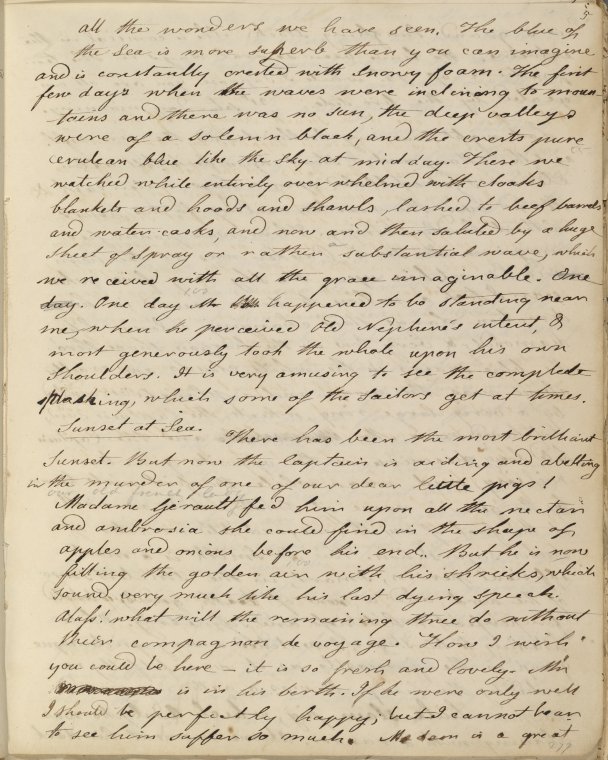 5
all the wonders we have seen. The blue of
the Sea is more superb than you can imagine
and is constantly crested with snowy foam. The first
few days when the waves were inclining to moun
-tains and there was no sun, the deep valleys
were of a solemn black, and the crests pure
cerulean blue like the sky at mid day. There we
watched while entirely overwhelmed with cloaks
blankets and hoods and shawls, lashed to beef barrels
and water-casks, and now and then saluted by a huge
sheet of spray or rather a substantial wave, which
we received with all the grace imaginable. One
day. One day Mr happened to be standing near
me, when he perceived Old Neptune's intent, &
most generously took the whole upon his own
shoulders. It is very amusing to see the complete
splashing, which some of the sailors get at times.
Sunset at Sea.
There has been the most brilliant
Sunset. But now the Captain is aiding and abetting
in the murder of one of our dear little pigs!
our old french lady
Madame Gerault fed him upon all the nectar
and ambrosia she could find in the shape of
apples and onions before his end. But he is now
filling the golden air with his shrieks, which
sound very much like his last dying speech.
Alass! what will the remaining three do without
their compagnon de voyage. How I wish
you could be here – it is so fresh and lovely. Mr
is in his birth. If he were only well
I should be perfectly happy; but I cannot bear
to see him suffer so much. Madeon is a great
277